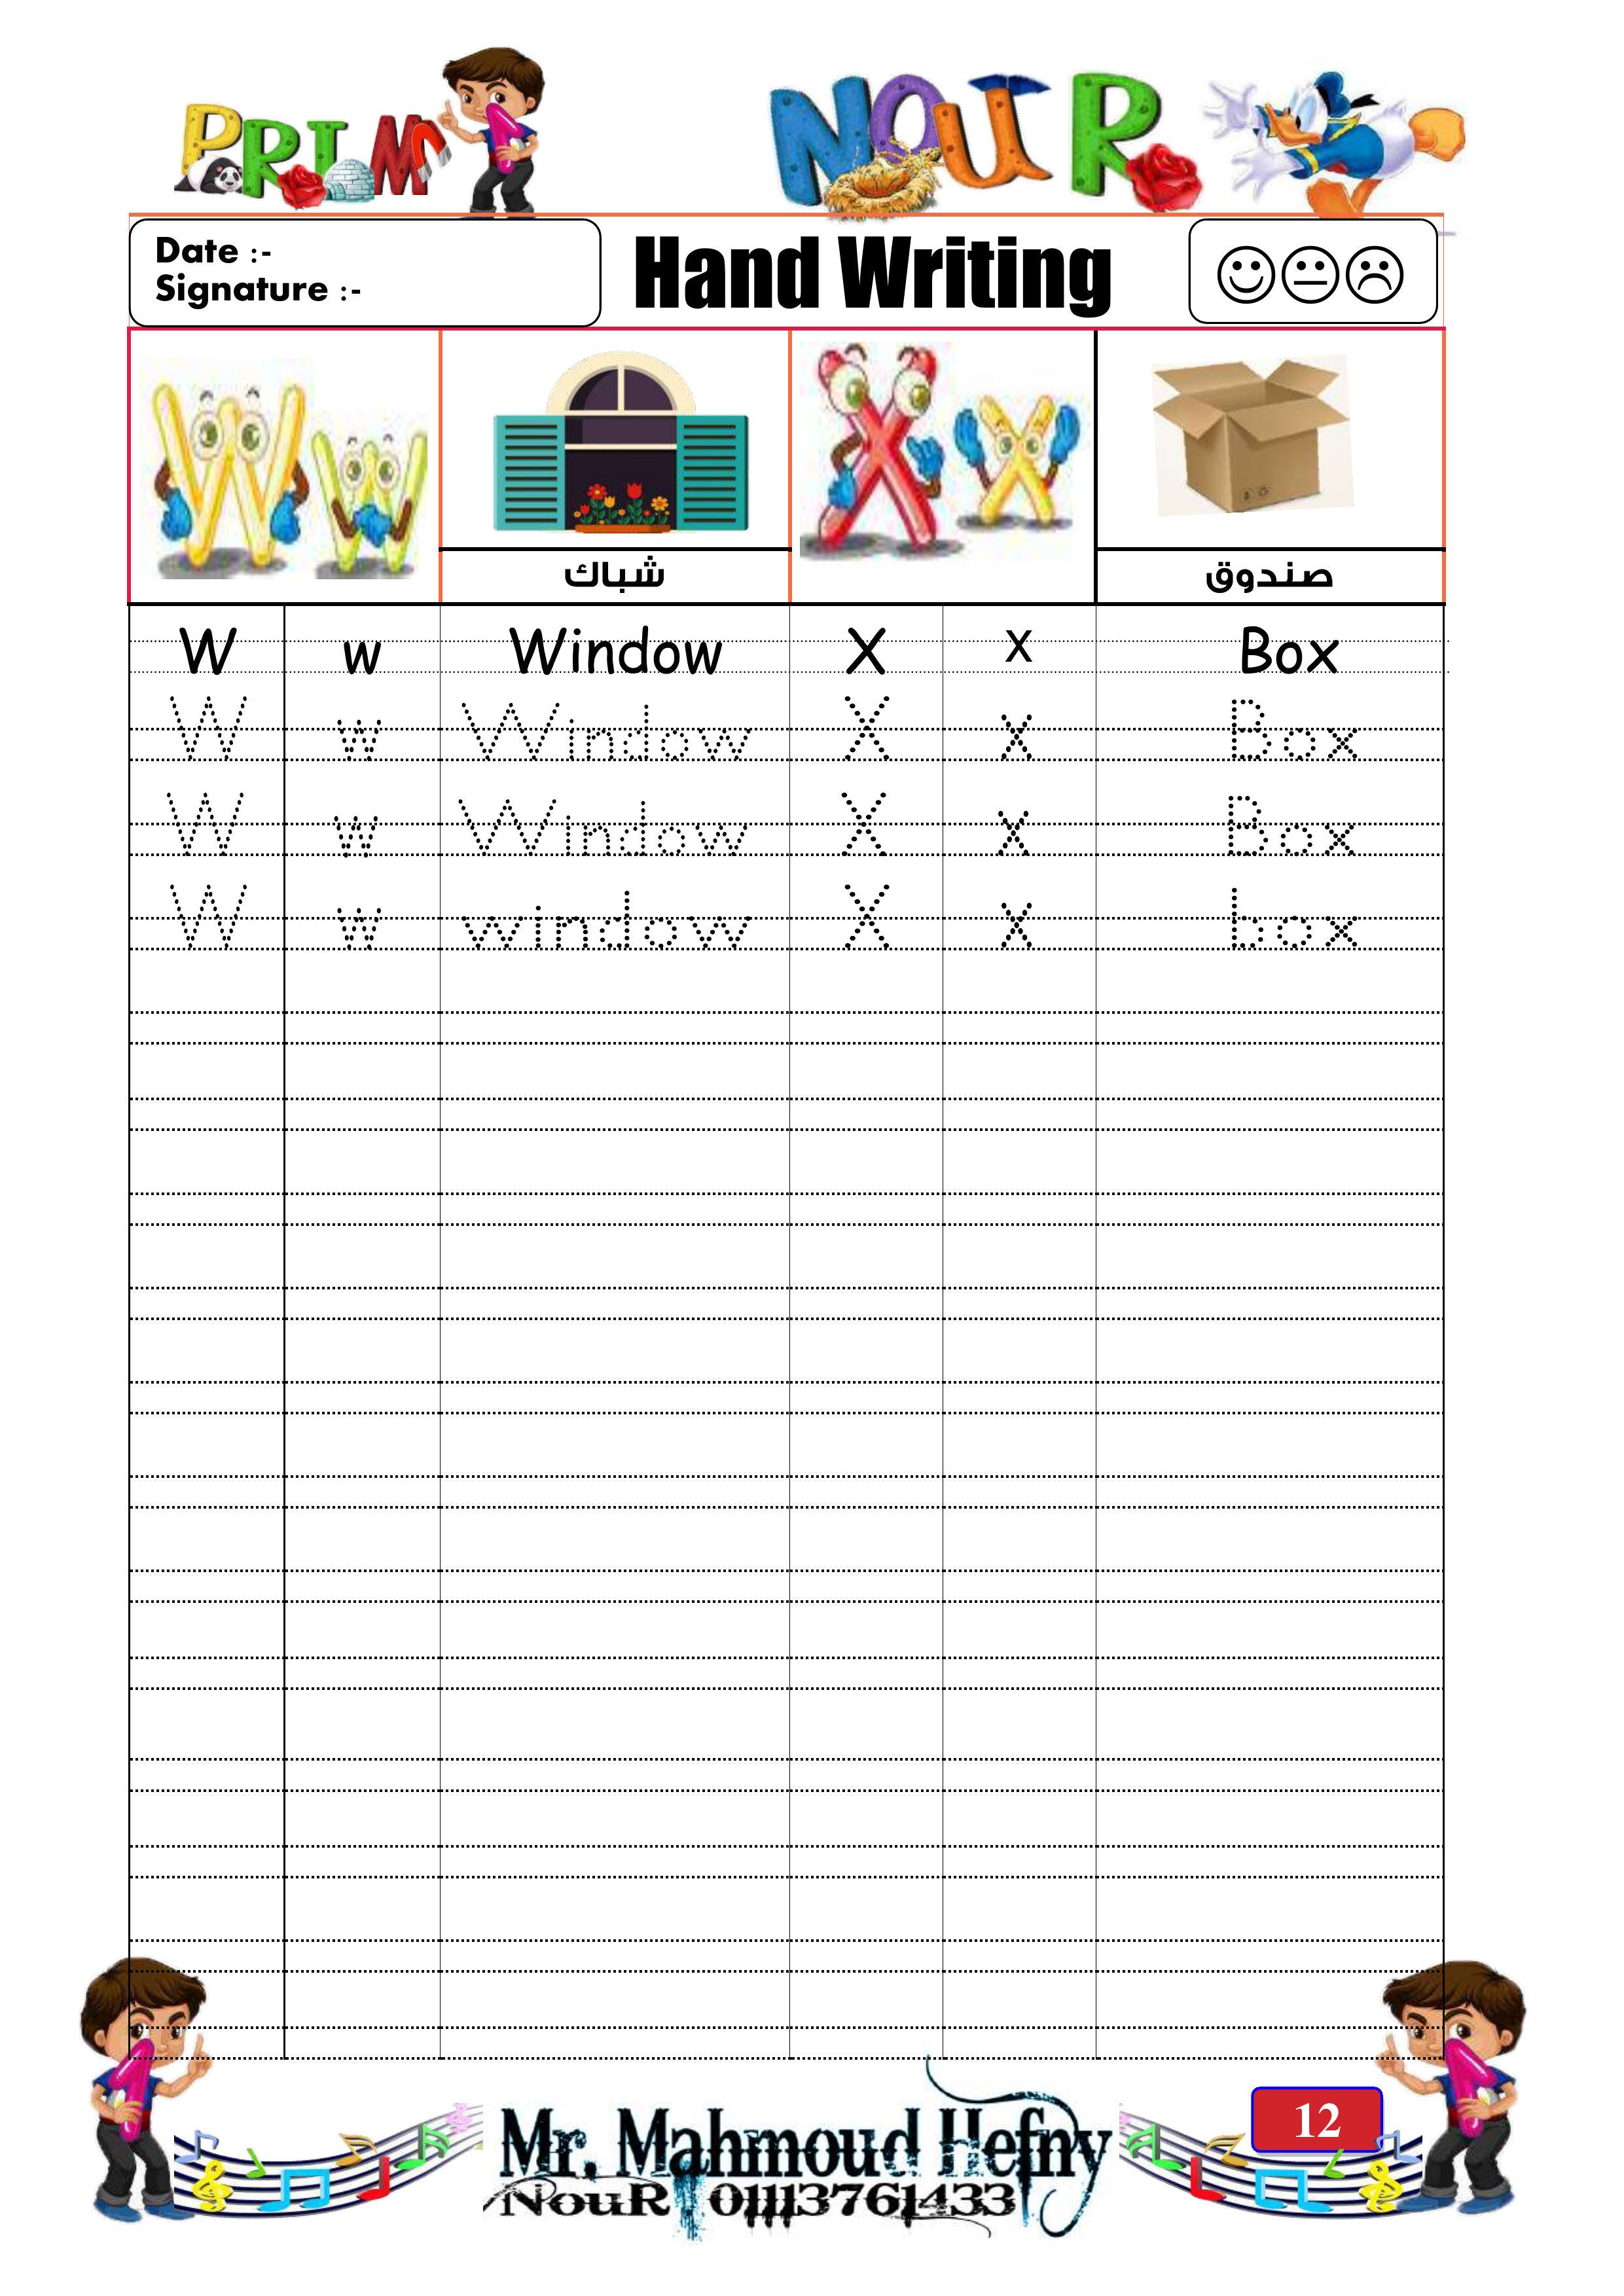 PRIM 1 NOUR
Date :-
Signature :-
Hand Writing
W w
X x
شباك
صندوق
W w Window X x Box
W w Window X x Box
W w Window X x Box
W w window X x box
Mr. Mahmoud Hefny
NouR. 01113761433
12